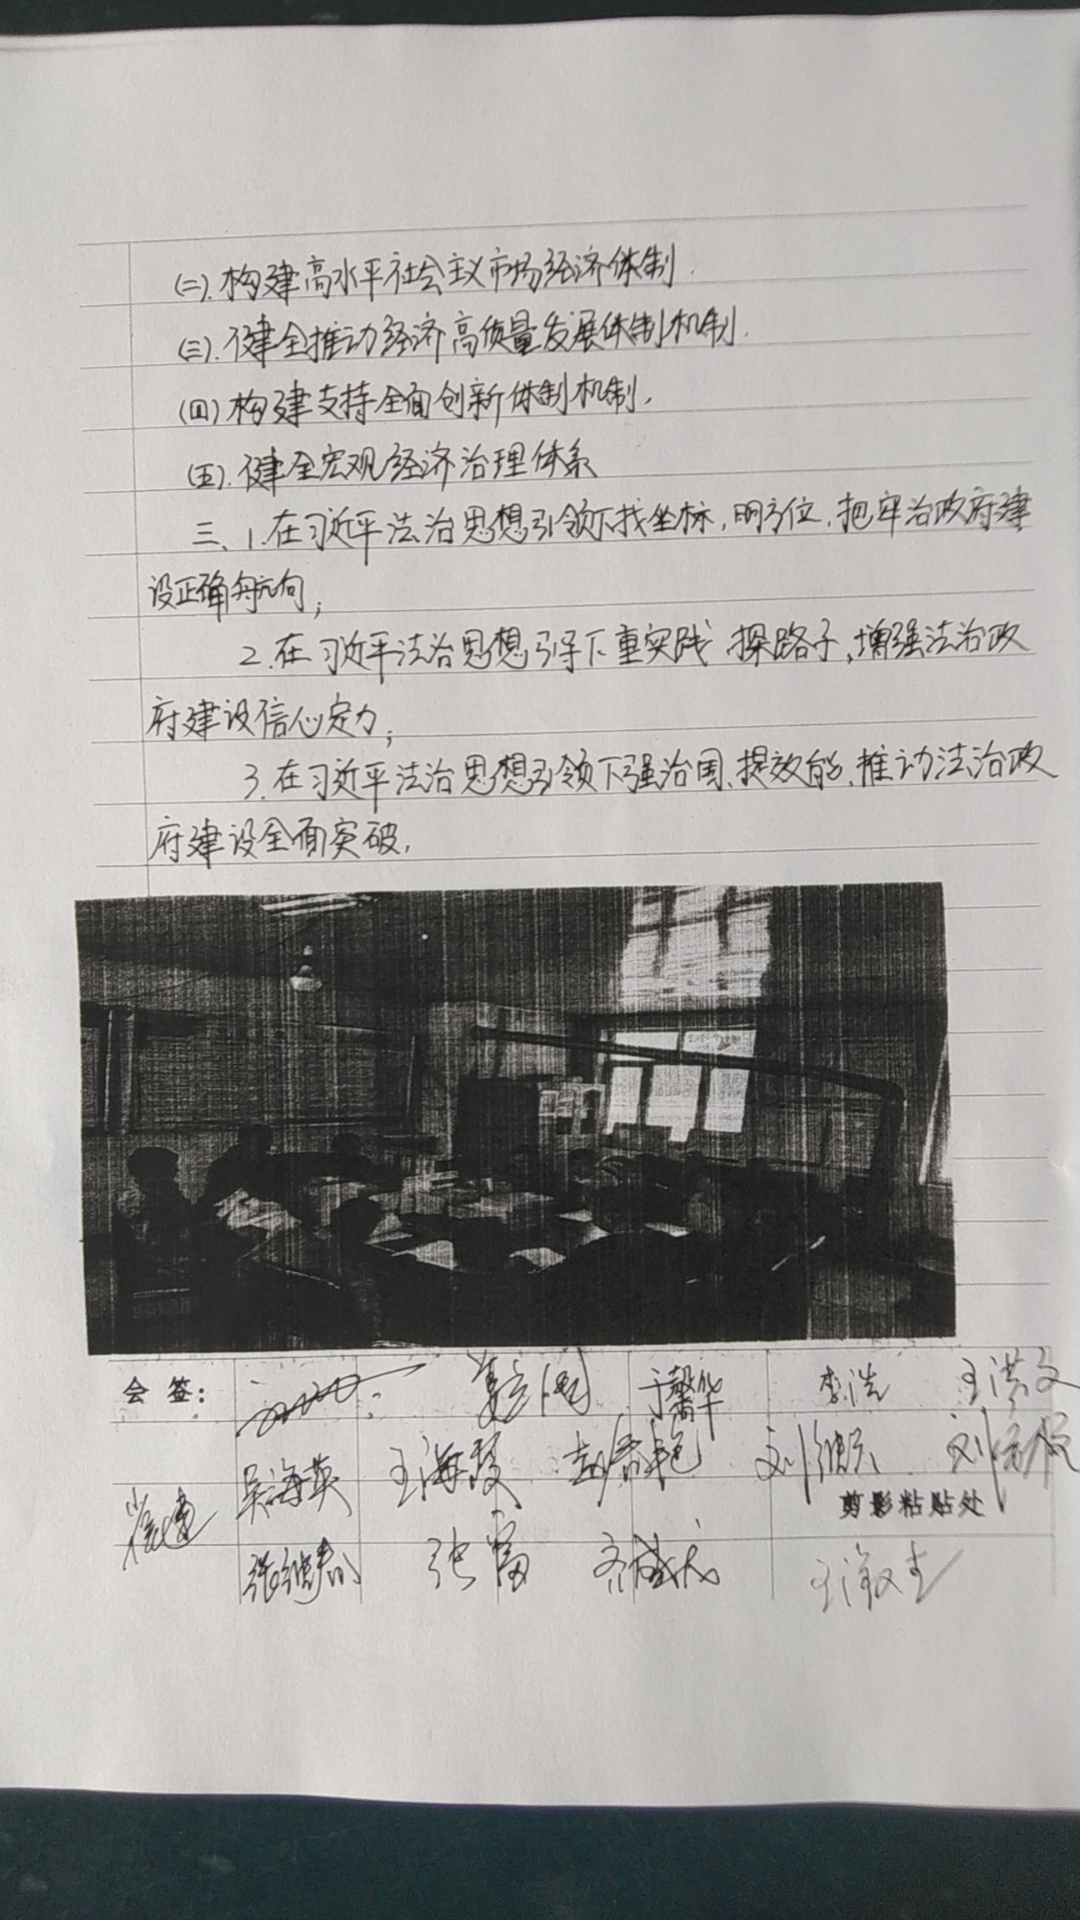 (二).构建高水平社会主义市场经济体制.
(三).健全推动经济高质量发展体制机制.
(四)构建支持全面创新体制机制.
(五).健全宏观经济治理体系
三、1.在习近平法治思想引领下找坐标,明方位,把牢法治政府建
设正确航向;
2.在习近平法治思想引导下重实践 探路子,增强法治政
府建设信心定力;
3.在习近平法治思想引领下强治国、提效能、推动法治政
府建设全面突破.
会 签:
于馨华 李浩 王洪文
吴海英 王海霞 赵春艳
剪影粘贴处
崔建
张继春 张富